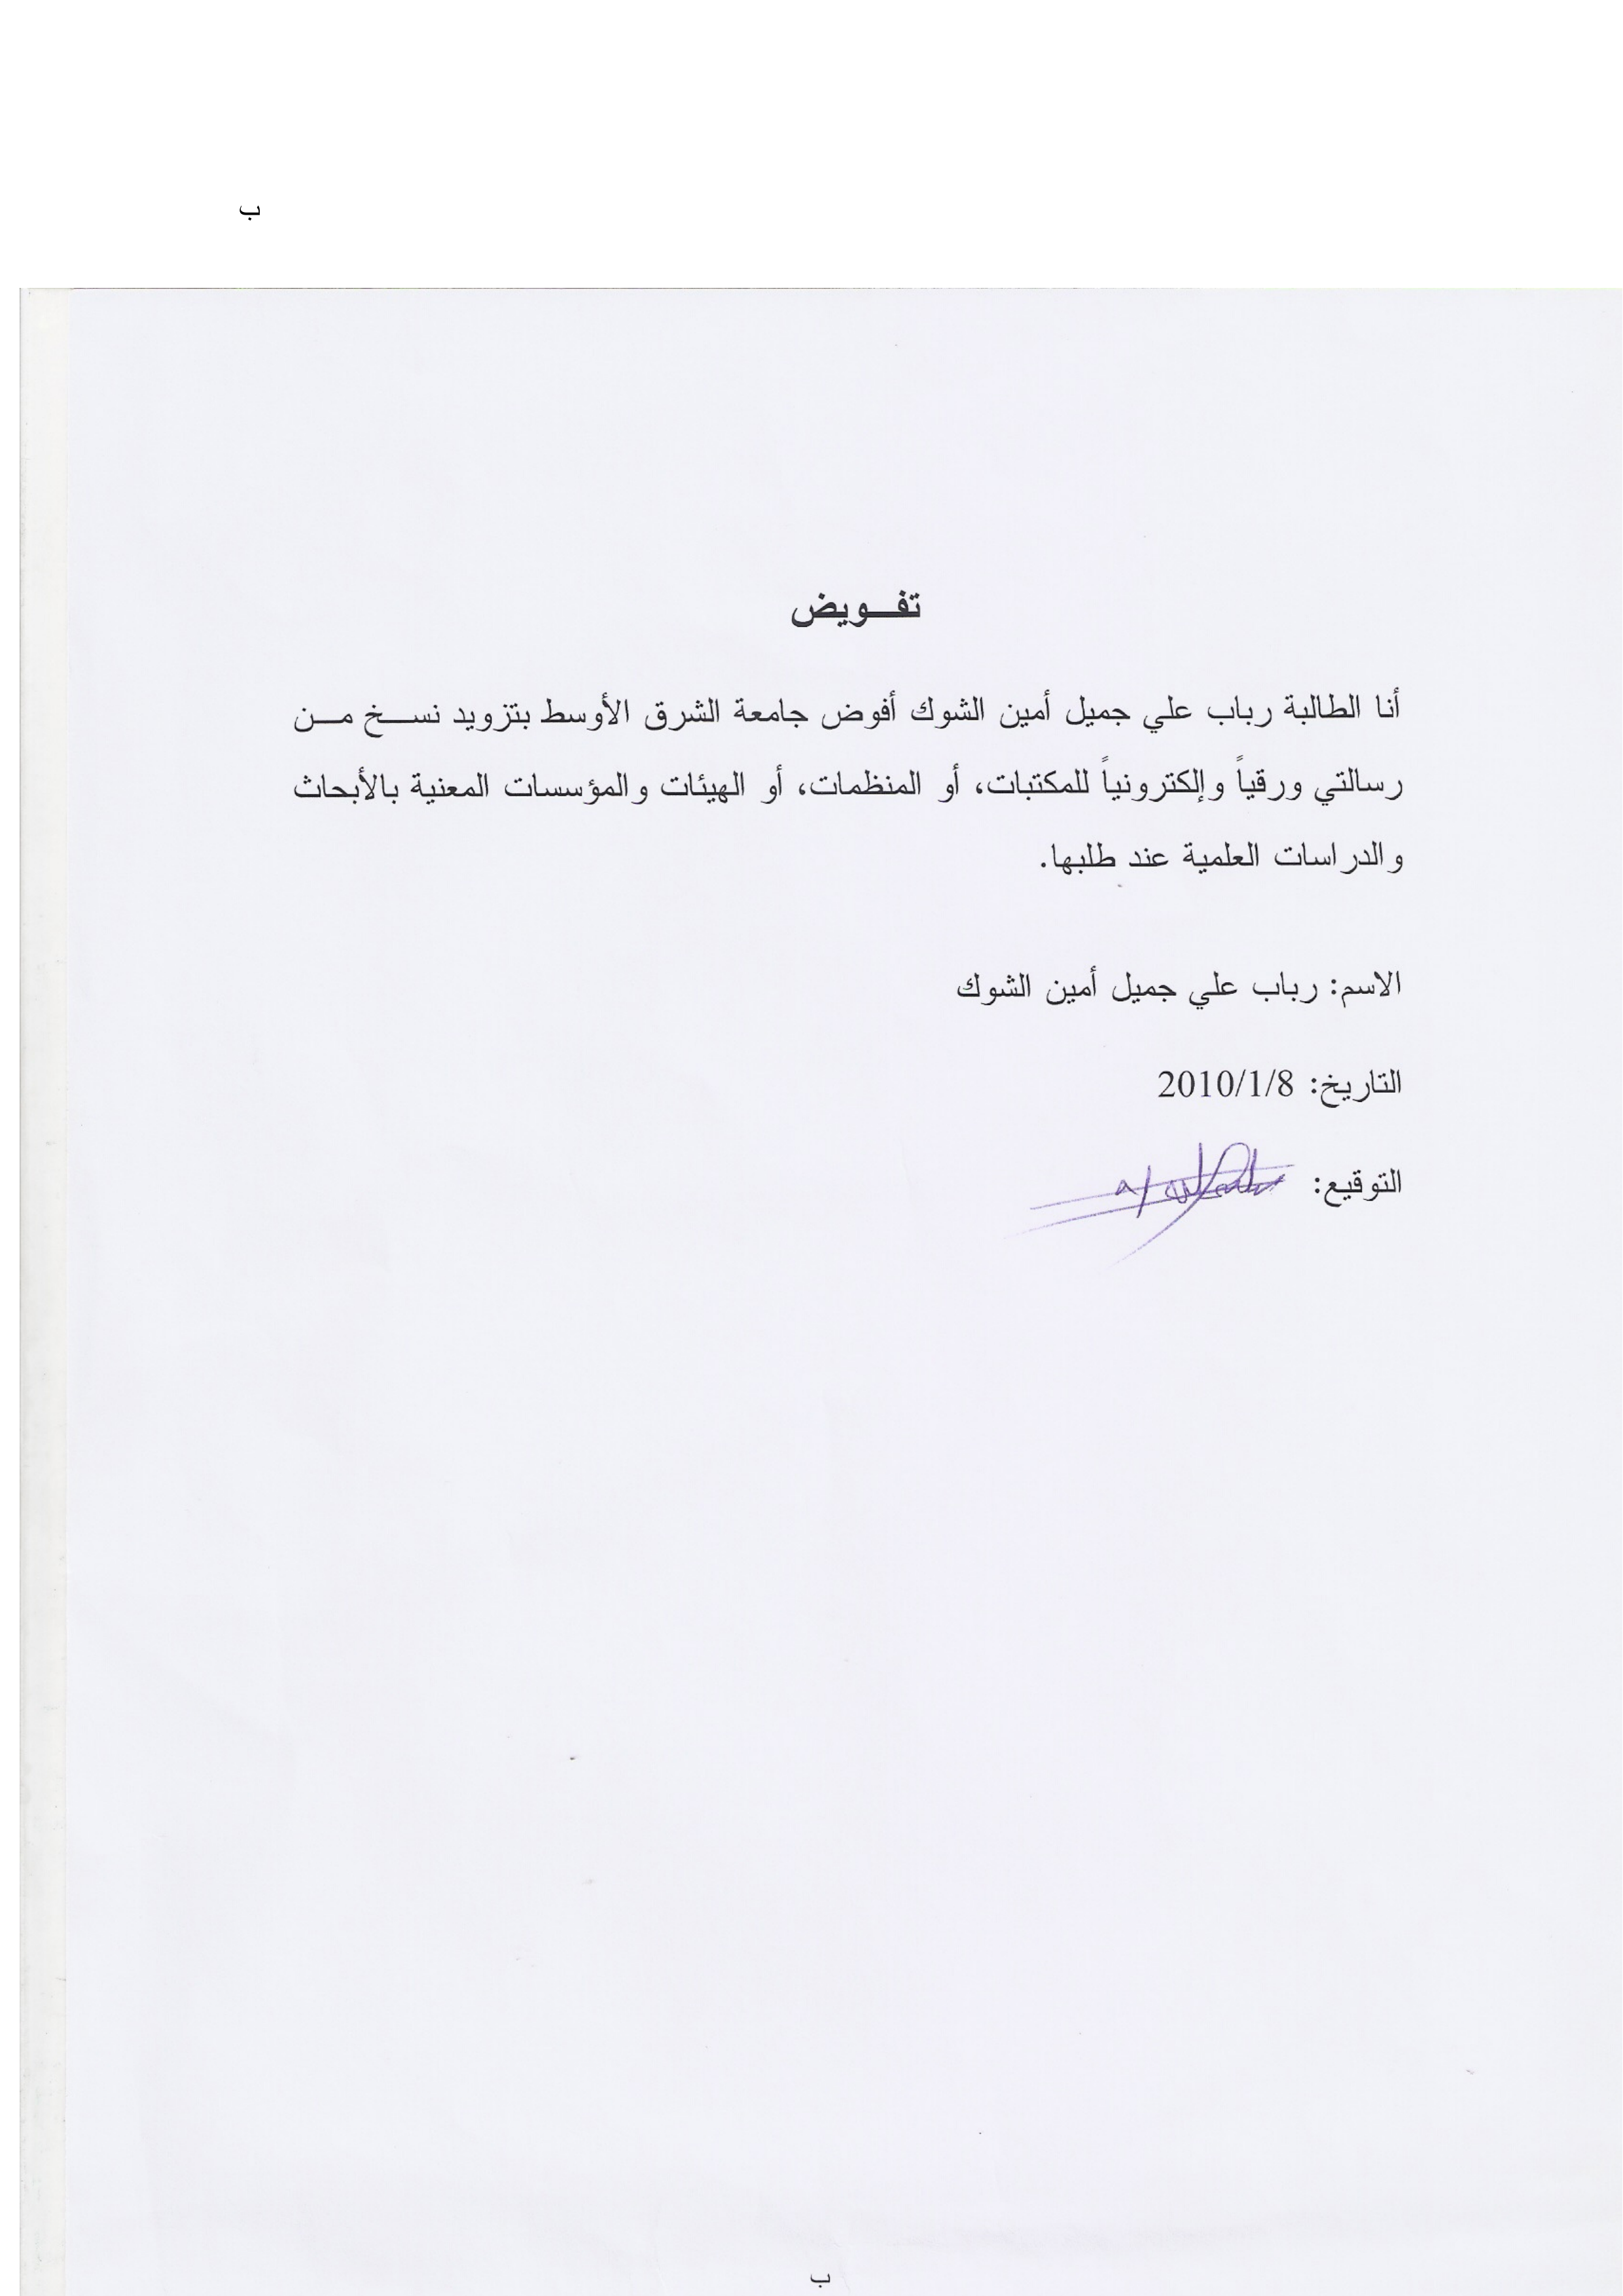 ب
تفـــويض
أنا الطالبة رباب علي جميل أمين الشوك أفوض جامعة الشرق الأوسط بتزويد نســـخ مـــن
رسالتي ورقياً وإلكترونياً للمكتبات، أو المنظمات، أو الهيئات والمؤسسات المعنية بالأبحاث
والدراسات العلمية عند طلبها.
الاسم: رباب علي جميل أمين الشوك
التاريخ: 2010/1/8
التوقيع:
ب